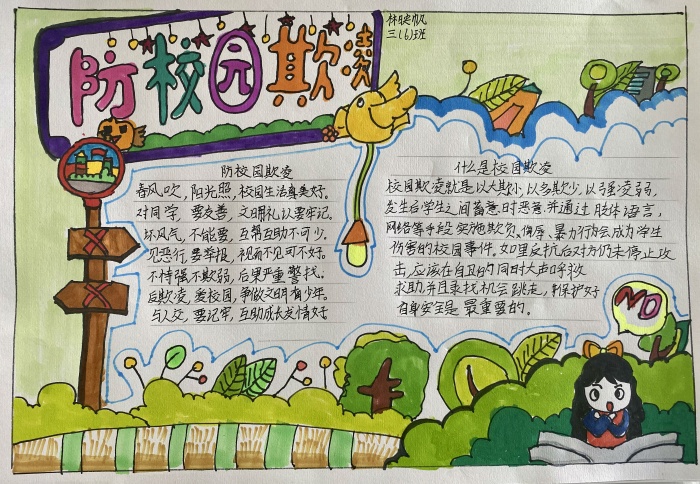 防校园欺凌
林晓帆
三(6)班
防校园欺凌
春风吹,阳光照,校园生活真美好。
对同学,要友善,文明礼仪要牢记。
坏风气,不能要,互帮互助不可少。
见恶行,要举报,视而不见可不好。
不恃强不欺弱,后果严重警找。
反欺凌,爱校园,争做文明有少年。
与人交,要记牢,互助成长友情好。
什么是校园欺凌
校园欺凌就是以大欺小,以多欺少,以强凌弱,
发生后学生之间蓄意时恶意并通过肢体语言,
网络等手段实施欺负、侮辱、暴力行为会成为学生
伤害的校园事件。如里反抗后对方仍未停止攻
击,应该在自卫的同时大声呼救
求助并且寻找机会逃走,保护好
自身安全是最重要的。
NO